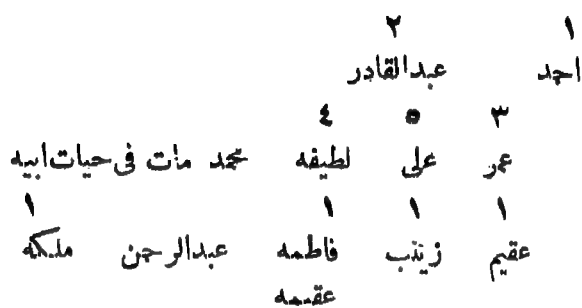 ١ ٢
احمد عبدالقادر
٣ ٥ ٤
عمر على لطيفه محمد مات فى حيات ابيه
١ ١ ١ ١
عقيم زينب فاطمه عبدالرحمن ملكه
عقيمه